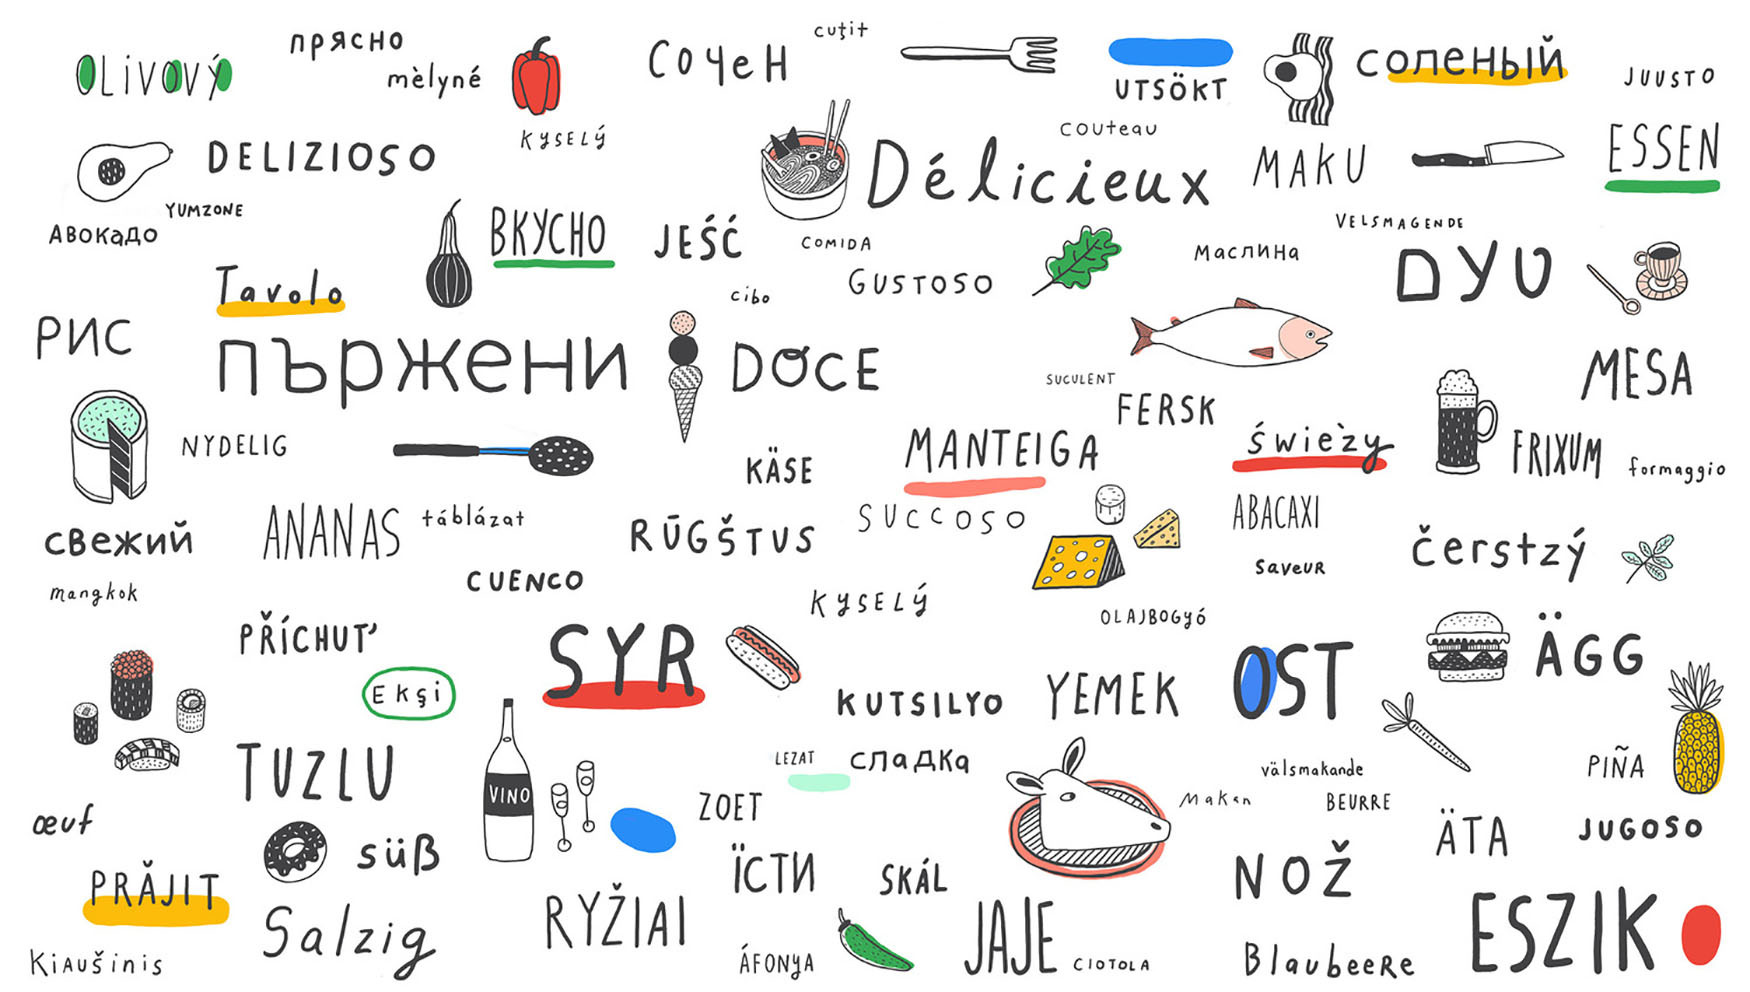 OLIVOVÝ
прясно
mèlyné
СОЧеН
cuţit
UTSÖKT
соленый
JUUSTO
KYSELÝ
DELIZIOSO
YUMZONE
АВОКАДО
Délicieux
couteau
MAKU
ESSEN
ВКУСНО
JEŚĆ
COMIDA
GUSTOSO
маслина
VELSMAGENDE
DYU
Tavolo
cibo
РИС
пържени
DOCE
SUCULENT
FERSK
MESA
NYDELIG
KÄSE
MANTEIGA
świeży
FRIXUM
formaggio
свежий
ANANAS
táblázat
RŪGŠTUS
SUCCOSO
ABACAXI
saveur
čerstzý
mangkok
CUENCO
KYSELÝ
OLAJBOGYÓ
PŘÍCHUT'
SYR
ÄGG
EKŞİ
KUTSILYO
YEMEK
OST
TUZLU
VINO
LEZAT
сладка
välsmakande
PIÑA
œuf
süß
ZOET
Makan
BEURRE
ÄTA
JUGOSO
PRĂJIT
ЇСТИ
SKÁL
NOŽ
Salzig
RYŽIAI
JAJE
ESZIK
KIAUŠINIS
ÁFONYA
CIOTOLA
Blaubeere